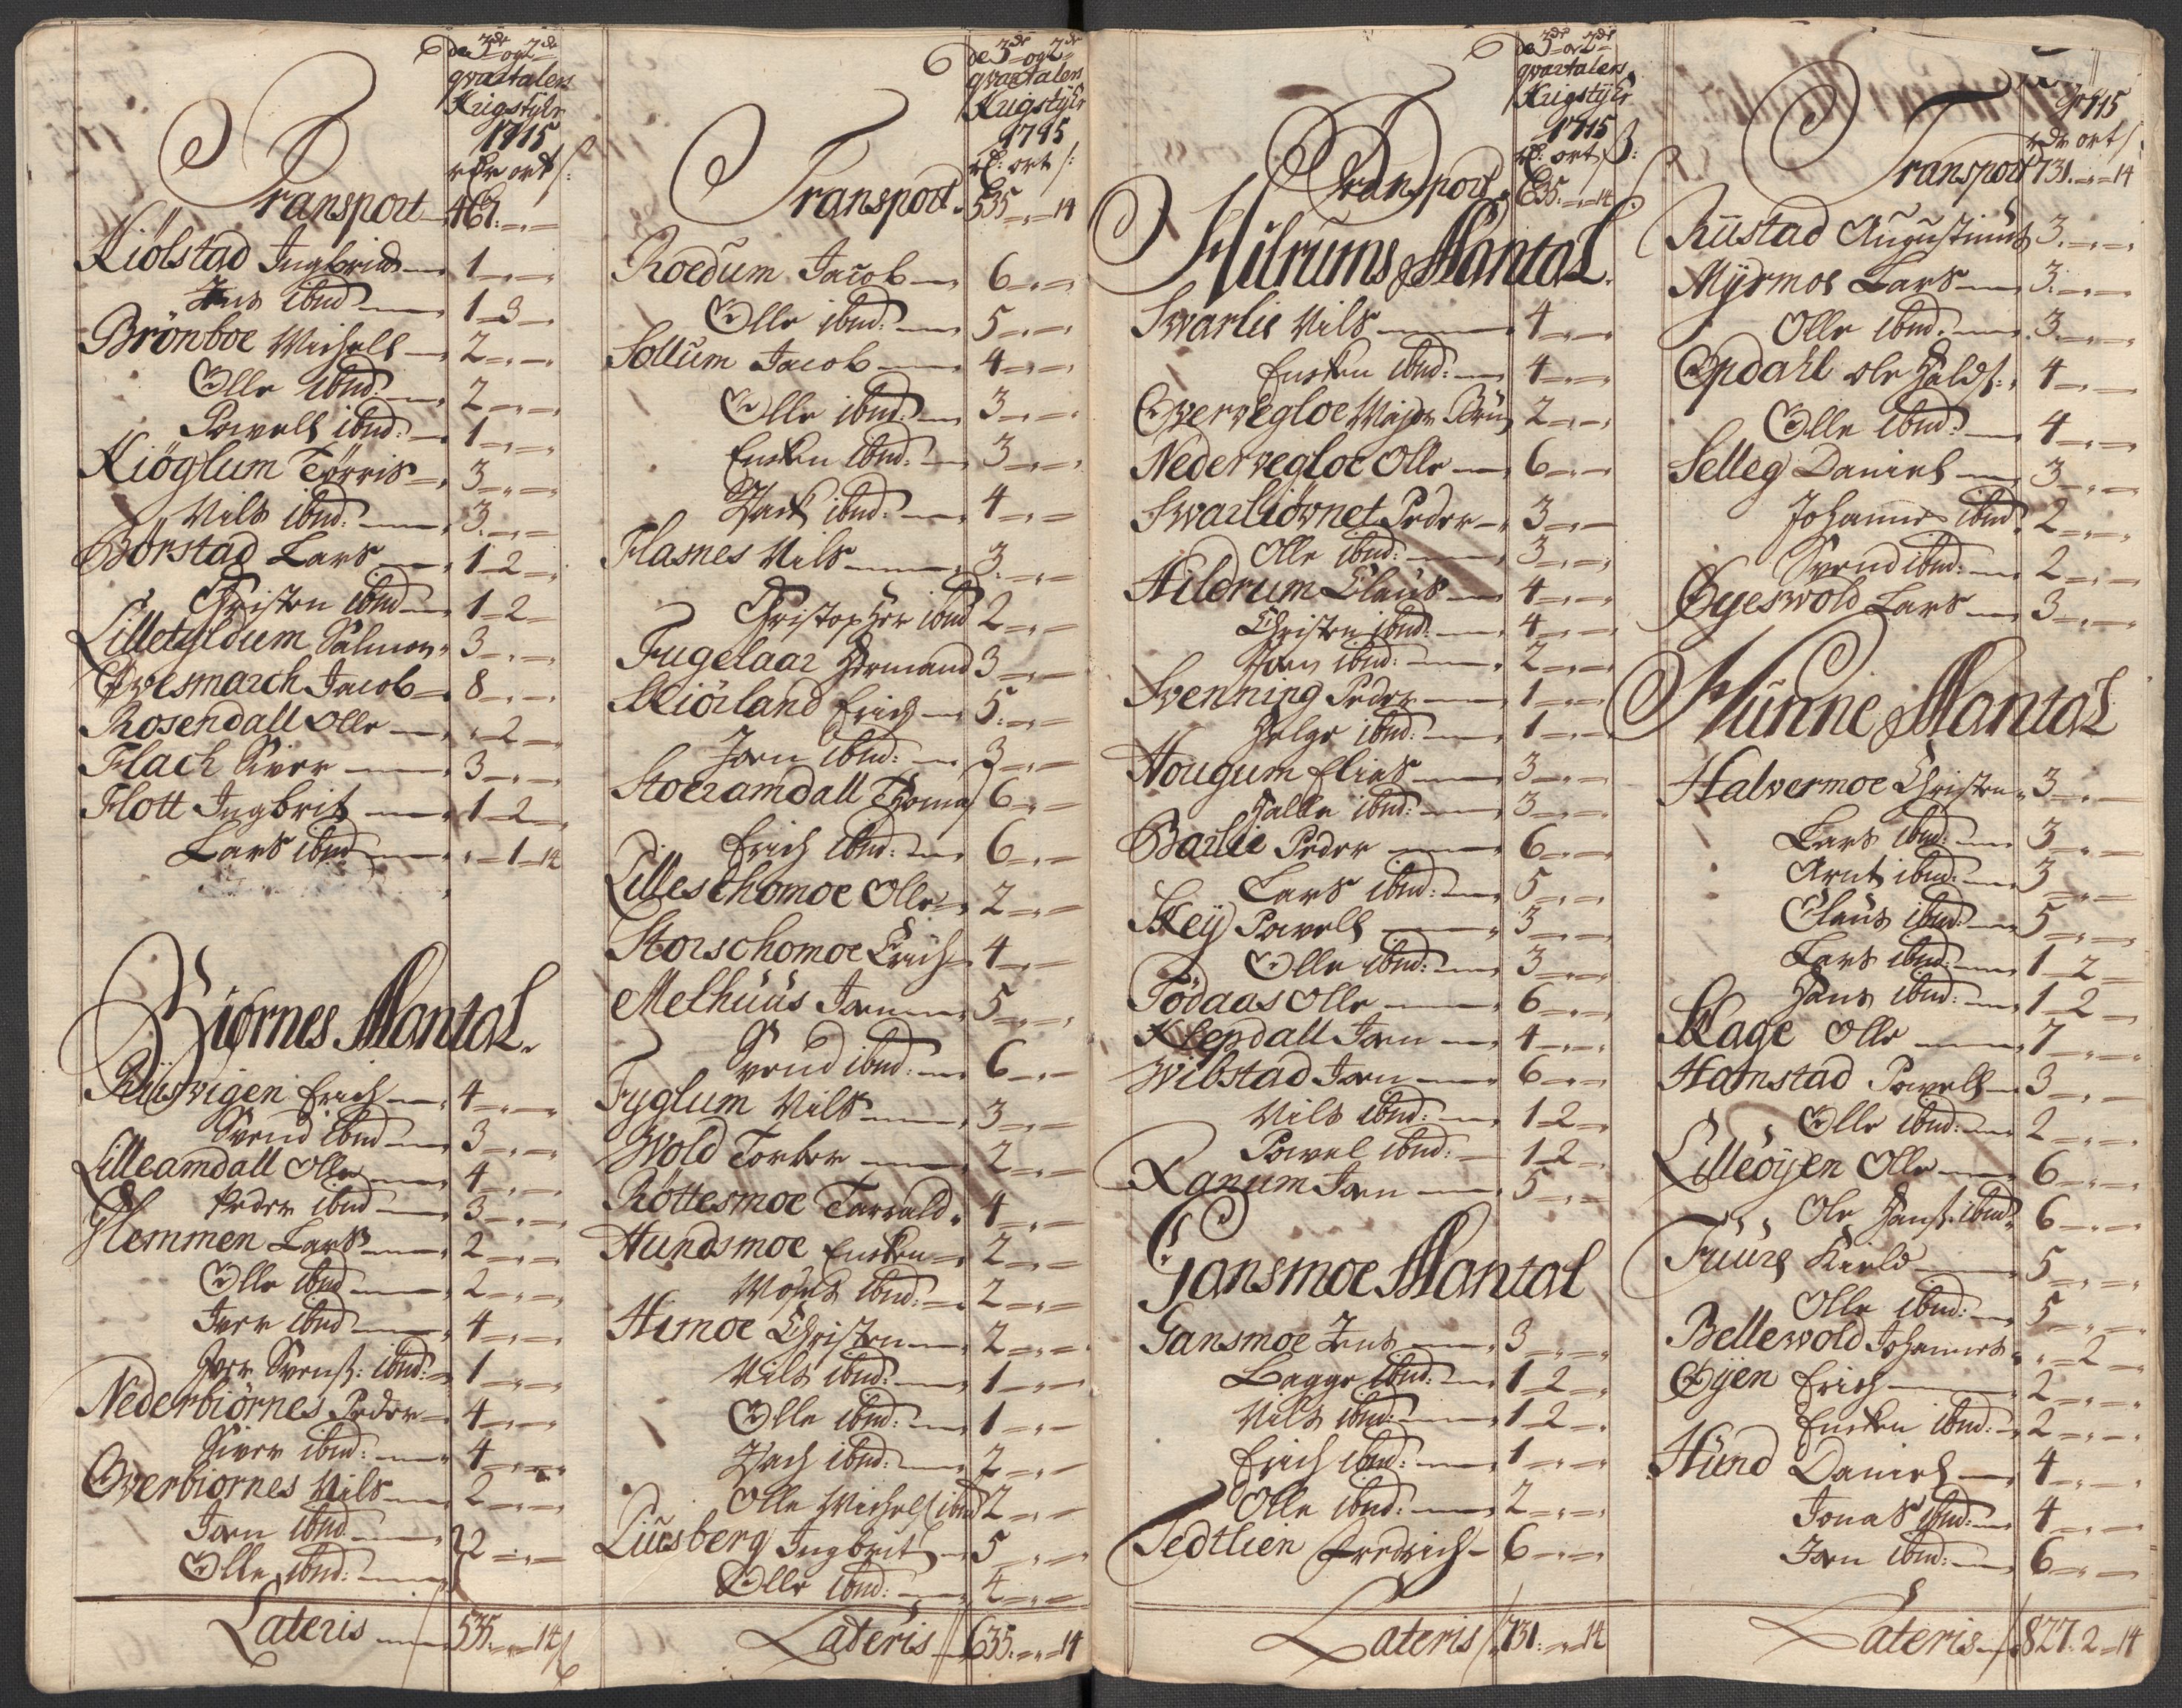 de 3de og 2de
qvartalers
Krigstyr
1715
rdr ort s:
Transport 461 „ „
Kiölstad Ingbrict 1 „ „
Jens ibnd 1 3 „
Brönboe Michell 2 „ „
Olle ibnd: 2 „ „
Powell ibnd: 1 „ „
Kiöglum Törris 3 „ „
Nils ibnd: 3 „ „
Börstad Lars 1 2 „
Christen ibnd 1 2 „
Lilletyldum Salmon 3 „ „
Qvesmarch Jacob 8 „ „
Rosendall Olle „ 2 „
Flach Siver 3 „ „
Flott Ingbrit 1 2 „
Lars ibnd „ 1 14
Biörnes Mantal.
Erich 4 „ „
Svend ibnd 3 „ „
Lilleamdall Olle 4 „ „
Peder ibnd 3 „ „
Glemmen Lars 2 „ „
Olle ibnd 2 „ „
Iver ibnd 4 „ „
Iver Svens: ibnd: 1 „ „
Nederbiörnes Peder 4 „ „
Siver ibnd: 4 „ „
Overbiornes Nils 2 „ „
Jon ibnd
Olle ibnd: 2 „ „
Lateris 535 „ 14
de 3de og 2de
qvartalers
Krigstyr
1715
rd: ort s:
Transport 535 „ 14
Roedum Jacob 6 „ „
Olle ibnd: 5 „ „
Sollum Jacob 4 „ „
Olle ibnd: 3 „ „
Ensten ibnd: 3 „ „
Zach ibnd: 4 „ „
Flasnes Nils 3 „ „
Christopher ibnd 2 „ „
Fugelaar Hermand 3 „ „
Skiörland Erich 5 „ „
Jon ibnd: 3 „ „
Stoeramdall Thomas 6 „ „
Erich ibnd: 6 „ „
Lilleschomoe Olle 2 „ „
Storschomoe Erich 4 „ „
Melhuus Jon 5 „ „
Svend ibnd: 6 „ „
Fyglum Nils 3 „ „
Wold Torber 2 „ „
Röttesmoe Tarrald 4 „ „
Hundsmoe Ensten 2 „ „
Mosses ibnd: 2 „ „
Himoe Christen 2 „ „
Nils ibnd: 1 „ „
Olle ibnd: 1 „ „
Zach ibnd: 2 „ „
Olle Michels ibnd 2 „ „
Liusberg Ingbrit 5 „ „
Olle ibnd: 4 „ „
Lateris 635 „ 14
de 3de og 2de
qvartalers
Krigstyr
1715
rd: ort s:
Transport 635 „ 14
Hilrums Mantal.
Swarlie Nils 4 „ „
Ensten ibnd: 4 „ „
Overvegloe Major Brün 2 „ „
Nedervegloe Olle 6 „ „
Swarliövnet Peder 3 „ „
Olle ibnd: 3 „ „
Hildrum Claus 4 „ „
Christen ibnd: 4 „ „
Jon ibnd: 2 „ „
Svenning Peder 1 „ „
Helge ibnd: 1 „ „
Hougum Elias 3 „ „
Halle ibnd: 3 „ „
Barlie Peder 6 „ „
Lars ibnd: 5 „ „
Skey Powell 3 „ „
Olle ibnd: 3 „ „
Födaas Olle 6 „ „
Klepdall Jon 4 „ „
Wibstad Jon 6 „ „
Nils ibnd: 1 2 „
Powel ibnd: 1 2 „
Ranum Jon 5 „ „
Gansmoe Mantal
Gansmoe Jens 3 „ „
Bagge ibnd: 1 2 „
Nils ibnd: 1 2 „
Erich ibnd: 1 „ „
Olle ibnd: 2 „ „
Tedtlien Fredrich 6 „ „
Lateris 731 „ 14
1715
rdr ort s:
Transport 731 „ 14
Rüstad Augustinus 3 „ „
Myrmoe Lars 3 „ „
Olle ibnd: 3 „ „
Opdahl ole Halds: 4 „ „
Olle ibnd: 4 „ „
Selleg Daniel 3 „ „
Johannes ibnd. 2 „ „
Svend ibnd: 2 „ „
Øyeswold Lars 3 „ „
Hunne Mantal
Halvermoe Christen 3 „ „
Lars ibnd: 3 „ „
Arnt ibnd: 3 „ „
Claus ibnd: 5 „ „
Lars ibnd: 1 2 „
Hans ibnd: 1 2 „
Skage Olle 7 „ „
Homstad Powell 3 „ „
Olle ibnd: 2 „ „
Lilleöyen Olle 6 „ „
Ole Hans: ibnd. 6 „ „
Fuurs Kield 5 „ „
Olle ibnd: 5 „ „
Bellewold Johannes „ 2 „
Öyen Erich 2 „ „
Ensten ibnd: 2 „ „
Hund Daniel 4 „ „
Jonas ibnd: 4 „ „
Jon ibnd: 6 „ „
Lateris 827. 2 14